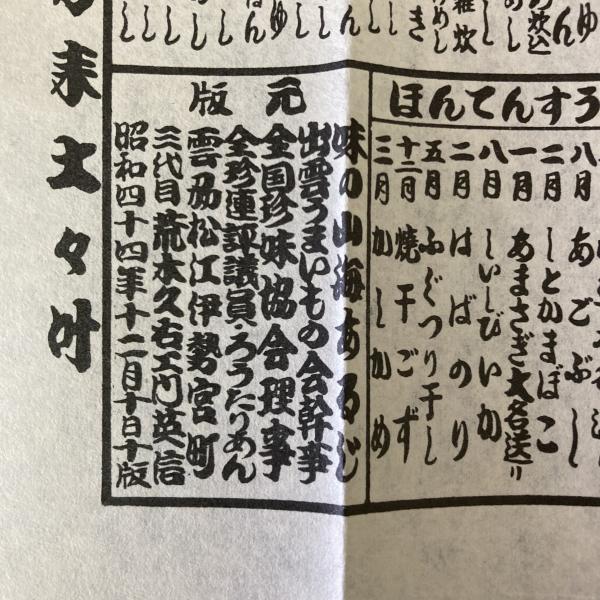 ほんてんすう
八月 あごぶし
二月 しとかまぼこ
一月 あまさぎ大名送り
八月 しいしびいか
二月 はばのり
五月 ふぐつり干し
十二月 焼干ごず
三月 かしかめ
版元
味の山海あるじ
出雲うまいもの会幹事
全国珍味協会理事
全珍連評議員・ろうたりあん
雲州松江伊勢宮町
三代目荒木久右エ門英信
昭和四十四年十二月十日十版
来大々叶